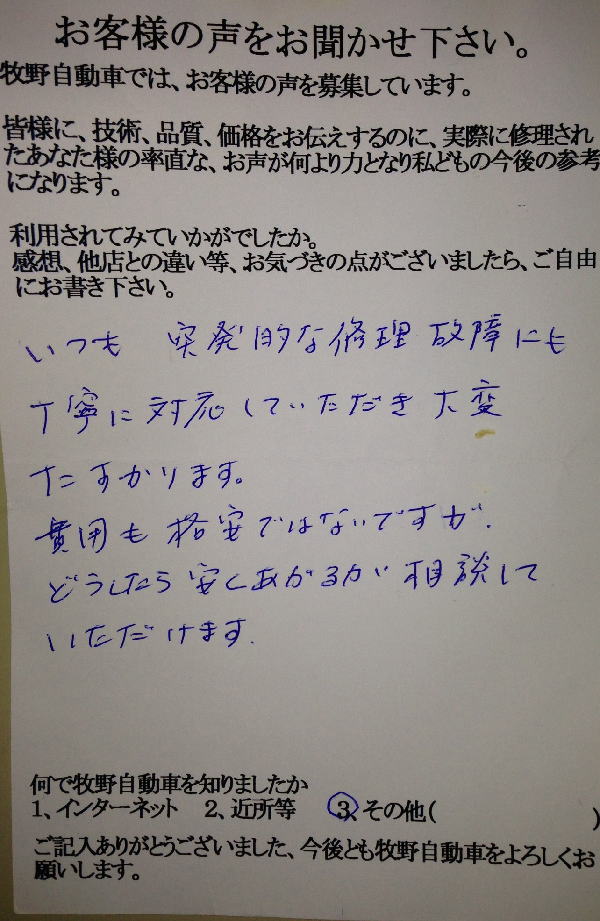 お客様の声をお聞かせ下さい。
牧野自動車では、お客様の声を募集しています。
皆様に、技術、品質、価格をお伝えするのに、実際に修理され
たあなた様の率直な、お声が何より力となり私どもの今後の参考
になります。
利用されてみていかがでしたか。
感想、他店との違い等、お気づきの点がございましたら、ご自由
にお書き下さい。
いつも 突発的な修理 故障にも
丁寧に対応していただき 大変
たすかります。
費用も格安ではないですが、
どうしたら安くあがるか 相談して
いただけます.
何で牧野自動車を知りましたか
1、インターネット 2、近所等 3、その他( )
ご記入ありがとうございました、今後とも牧野自動車をよろしくお
願いします。